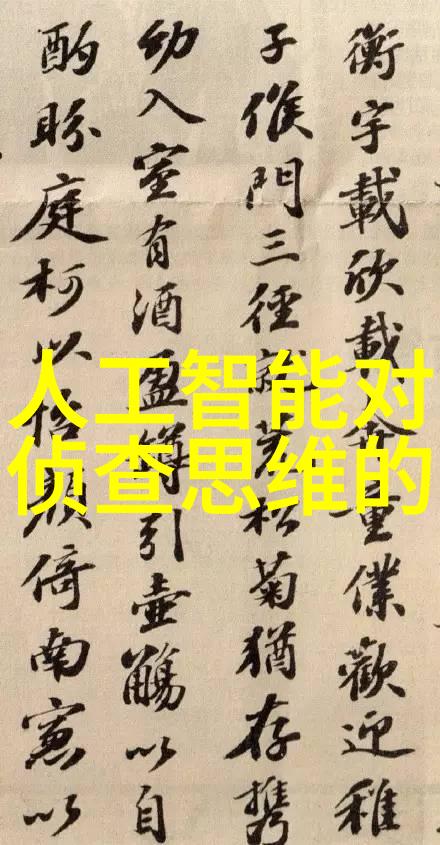 人工智能对
侦查思维的
衡宇載欣載奔童僕歡迎稚
子候門三徑就荒松菊猶存携
幼入室有酒盈罇引壺觴以自
酌眄庭柯以怡顔倚南窻以